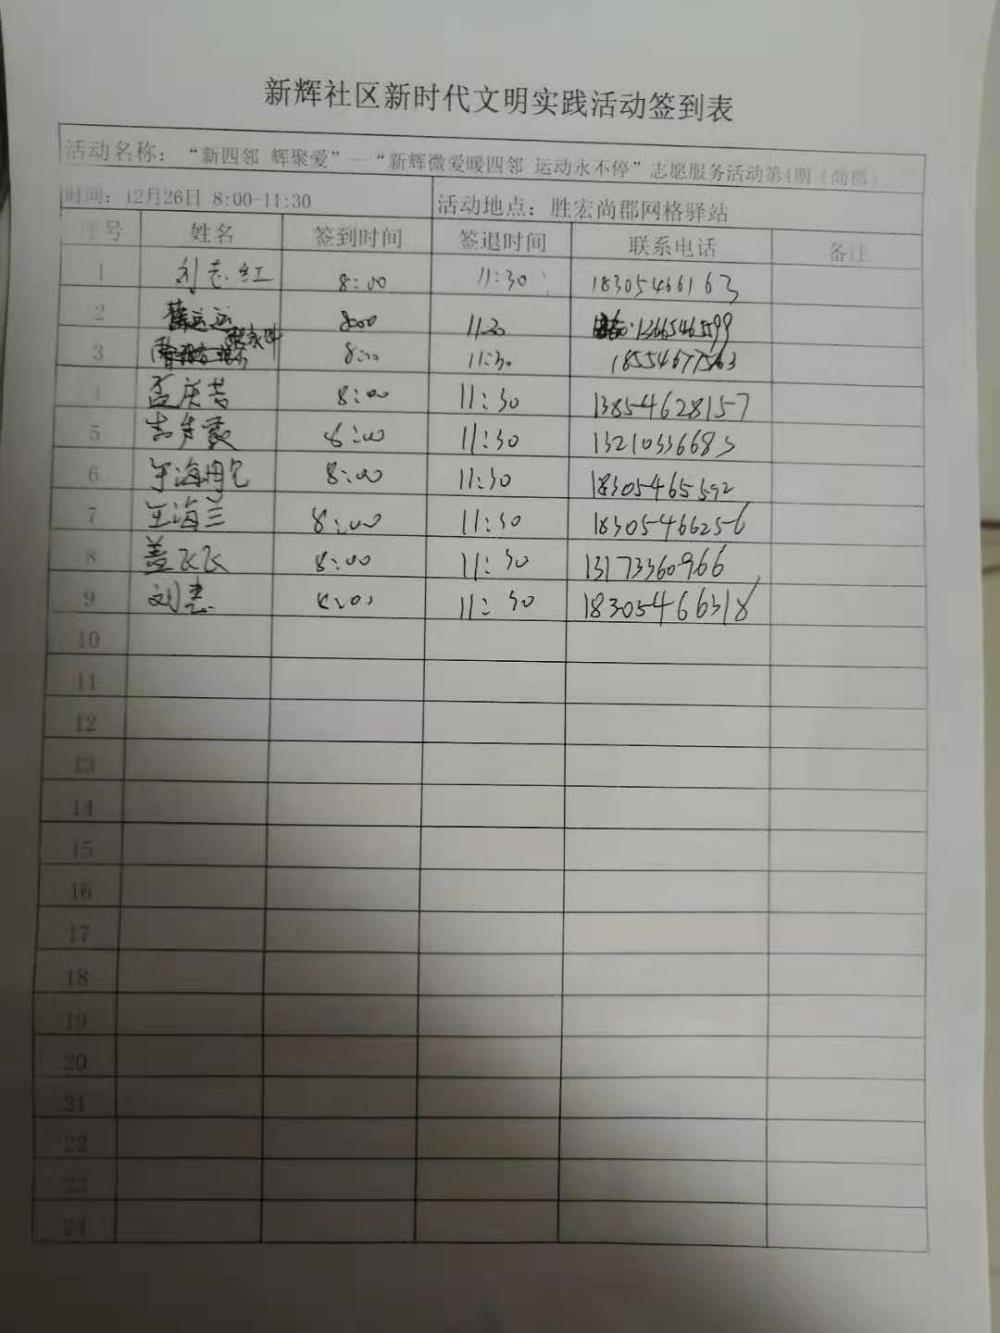 新辉社区新时代文明实践活动签到表
活动名称：“新四邻 辉聚爱”—“新辉微爱暖四邻 运动永不停”志愿服务活动第4期（尚郡）
时间：12月26日 8:00-11:30 活动地点：胜宏尚郡网格驿站
序号 姓名 签到时间 签退时间 联系电话 备注
1 刘志红 8:00 11:30 18305466163
2 8:00 11:30
3 8:00 11:30
4 8:00 11:30 13854628157
5 8:00 11:30 13210336683
6 8:00 11:30 18305465592
7 王海兰 8:00 11:30 18305466256
8 盖飞飞 8:00 11:30 13173360966
9 刘志 8:00 11:30 18305466318
10
11
12
13
14
15
16
17
18
19
20
21
22
23
24